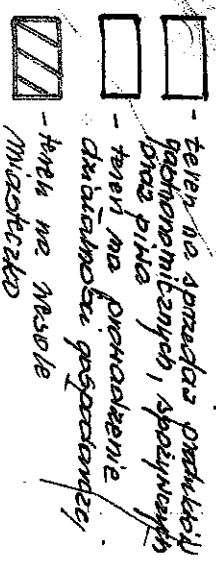 - teren na sprzedaż produktów
gastronomicznych, spożywczych
oraz piwa
- teren na prowadzenie
działalności gospodarczej
- teren na wesołe
miasteczko